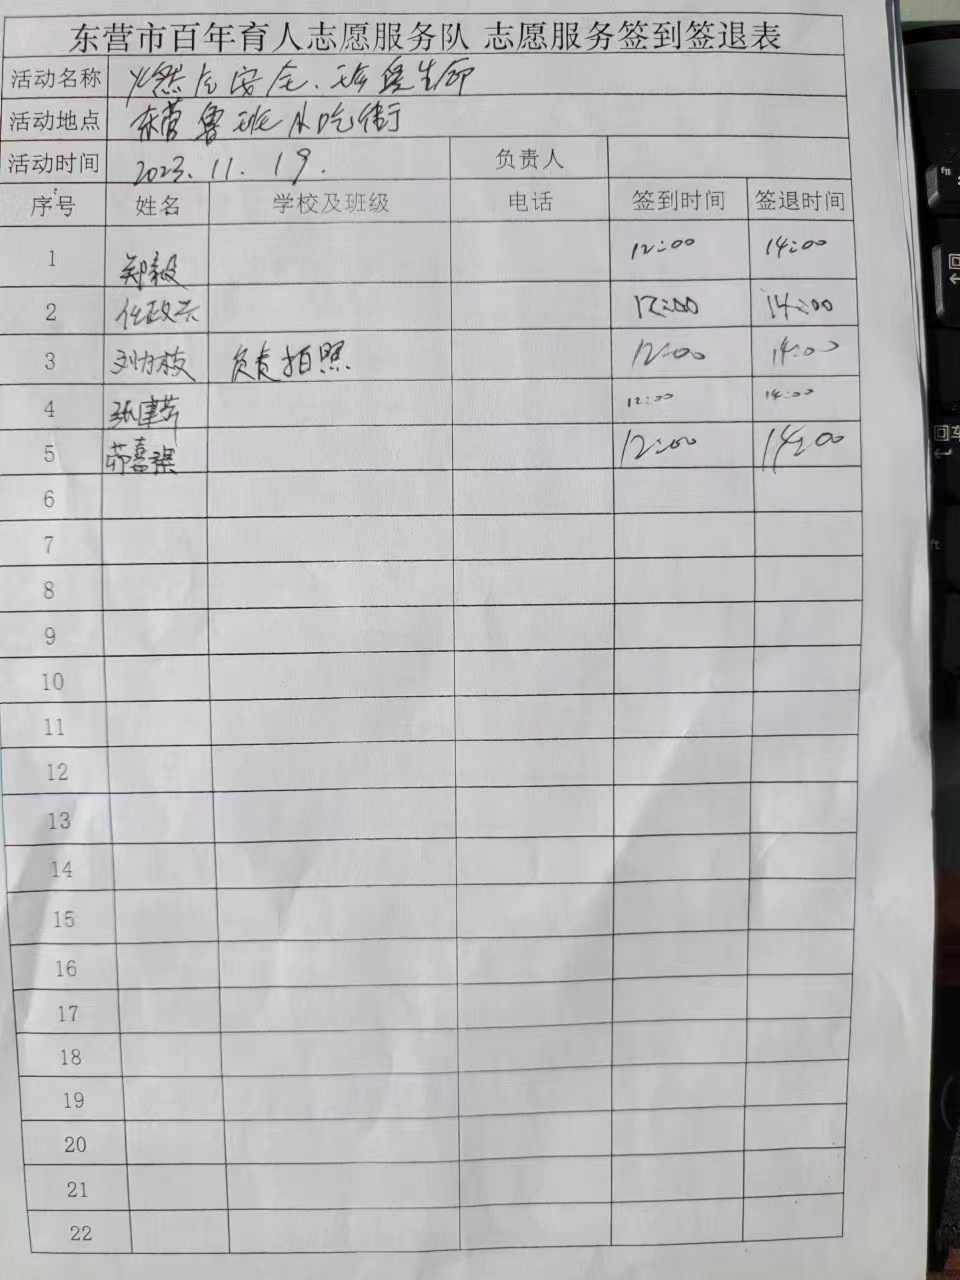 东营市百年育人志愿服务队 志愿服务签到签退表
活动名称 燃气安全.
活动地点 东营鲁班小吃街
活动时间 2023.11.19. 负责人
序号 姓名 学校及班级 电话 签到时间 签退时间
1 郑毅 12:00 14:00
2 任政 12:00 14:00
3 刘 枝 负责拍照 12:00 14:00
4 张建芹 12:00 14:00
5 12:00 14:00
6
7
8
9
10
11
12
13
14
15
16
17
18
19
20
21
22